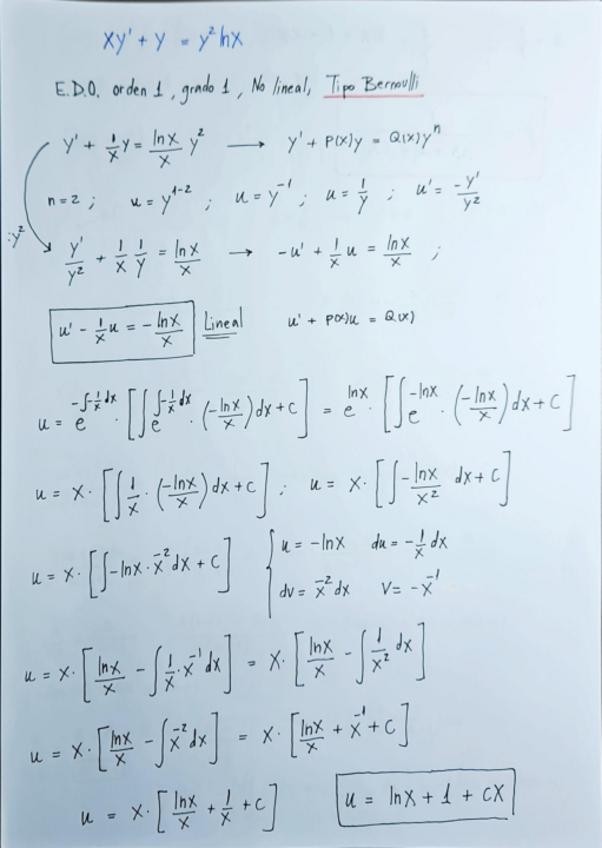 xy' + y = y² lnx
E.D.O. orden 1, grado 1, No lineal, Tipo Bernoulli
y' + 1/x y = lnx/x y² → y' + P(x)y = Q(x)yⁿ
n=2 ; u = y¹⁻² ; u = y⁻¹ ; u = 1/y ; u' = -y'/y²
:y²
y'/y² + 1/x 1/y = lnx/x → -u' + 1/x u = lnx/x ;
u' - 1/x u = - lnx/x Lineal u' + P(x)u = Q(x)
u = e^(-∫-1/x dx) · [∫ e^(∫-1/x dx) · (-lnx/x) dx + C] = e^(lnx) · [∫ e^(-lnx) · (-lnx/x) dx + C]
u = x · [∫ 1/x · (-lnx/x) dx + C] ; u = x · [∫ - lnx/x² dx + C]
u = x · [∫ -lnx · x⁻² dx + C] { u = -lnx du = -1/x dx
dv = x⁻² dx V = -x⁻¹
u = x · [lnx/x - ∫ 1/x · x⁻¹ dx] = x · [lnx/x - ∫ 1/x² dx]
u = x · [lnx/x - ∫ x⁻² dx] = x · [lnx/x + x⁻¹ + C]
u = x · [lnx/x + 1/x + C] u = lnx + 1 + Cx